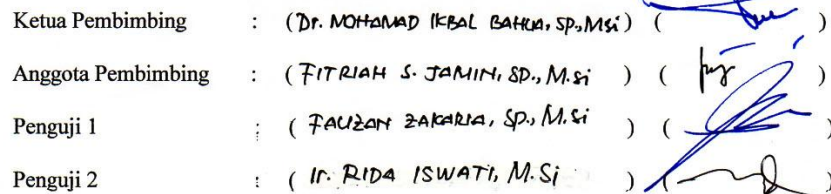 Ketua Pembimbing : (Dr. MOHAMAD IKBAL BAHUA, SP., MSi) ( )
Anggota Pembimbing : (FITRIAH S. JAMIN, SP., M.Si ) ( )
Penguji 1 : ( FAUZAN ZAKARIA, SP., M.Si ) ( )
Penguji 2 : ( Ir. RIDA ISWATI, M.Si ) ( )